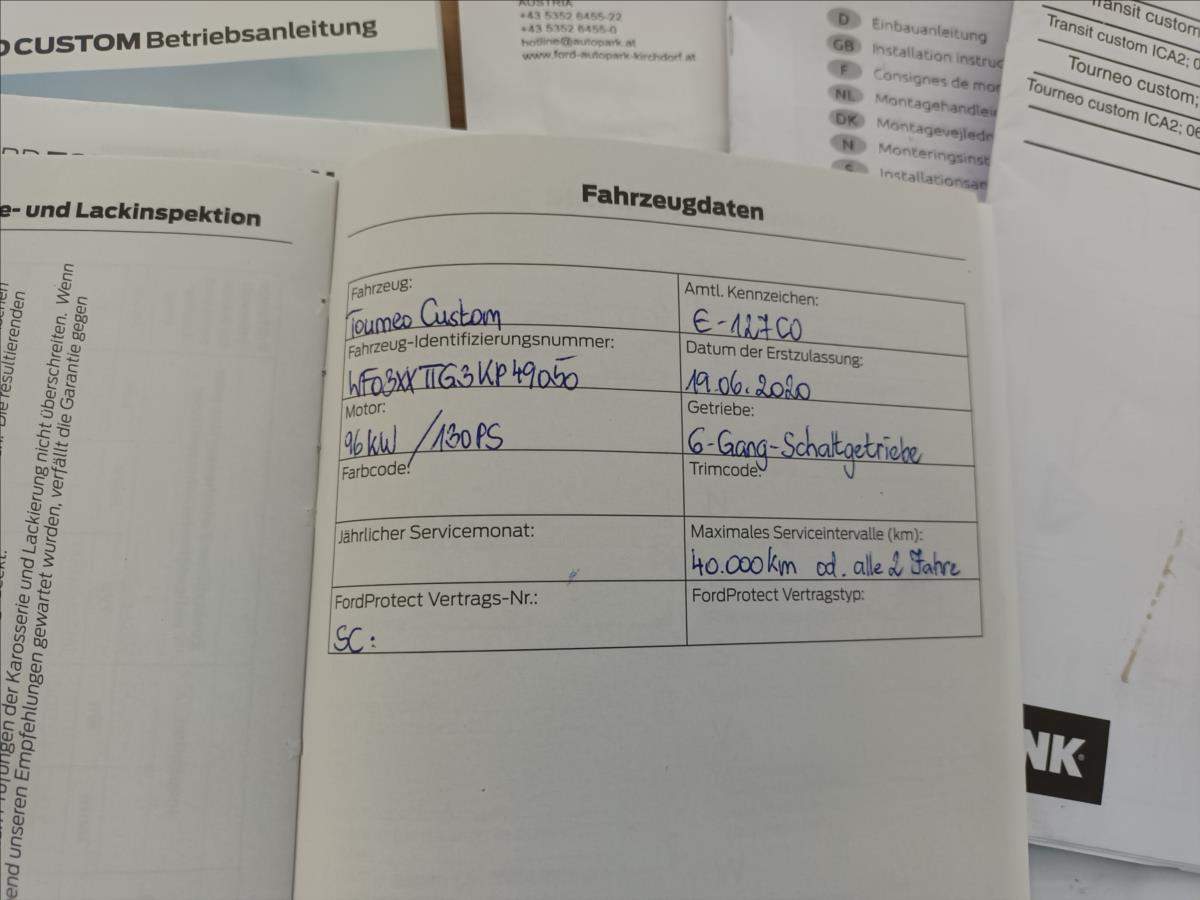 CUSTOM Betriebsanleitung
AUSTRIA
+43 5352 6455-22
+43 5352 6455-0
hotline@autopark.at
www.ford-autopark-kirchdorf.at
D Einbauanleitung
GB Installation Instruc
F Consignes de mo
NL Montagehandlei
DK Montagevejledn
N Monteringsinst
S Installationsan
Transit custom
Transit custom ICA2; 0
Tourneo custom;
Tourneo custom ICA2; 06
e- und Lackinspektion
resultierenden
ungen der Karosserie und Lackierung nicht überschreiten. Wenn
end unseren Empfehlungen gewartet wurden, verfällt die Garantie gegen
Fahrzeugdaten
Fahrzeug:
Tourneo Custom
Amtl. Kennzeichen:
E-127CO
Fahrzeug-Identifizierungsnummer:
WF03XXTTG3KP49050
Datum der Erstzulassung:
19.06.2020
Motor:
96kW /130PS
Getriebe:
6-Gang-Schaltgetriebe
Farbcode:
Trimcode:
Jährlicher Servicemonat:
Maximales Serviceintervalle (km):
40.000km od. alle 2 Jahre
FordProtect Vertrags-Nr.:
SC:
FordProtect Vertragstyp:
NK